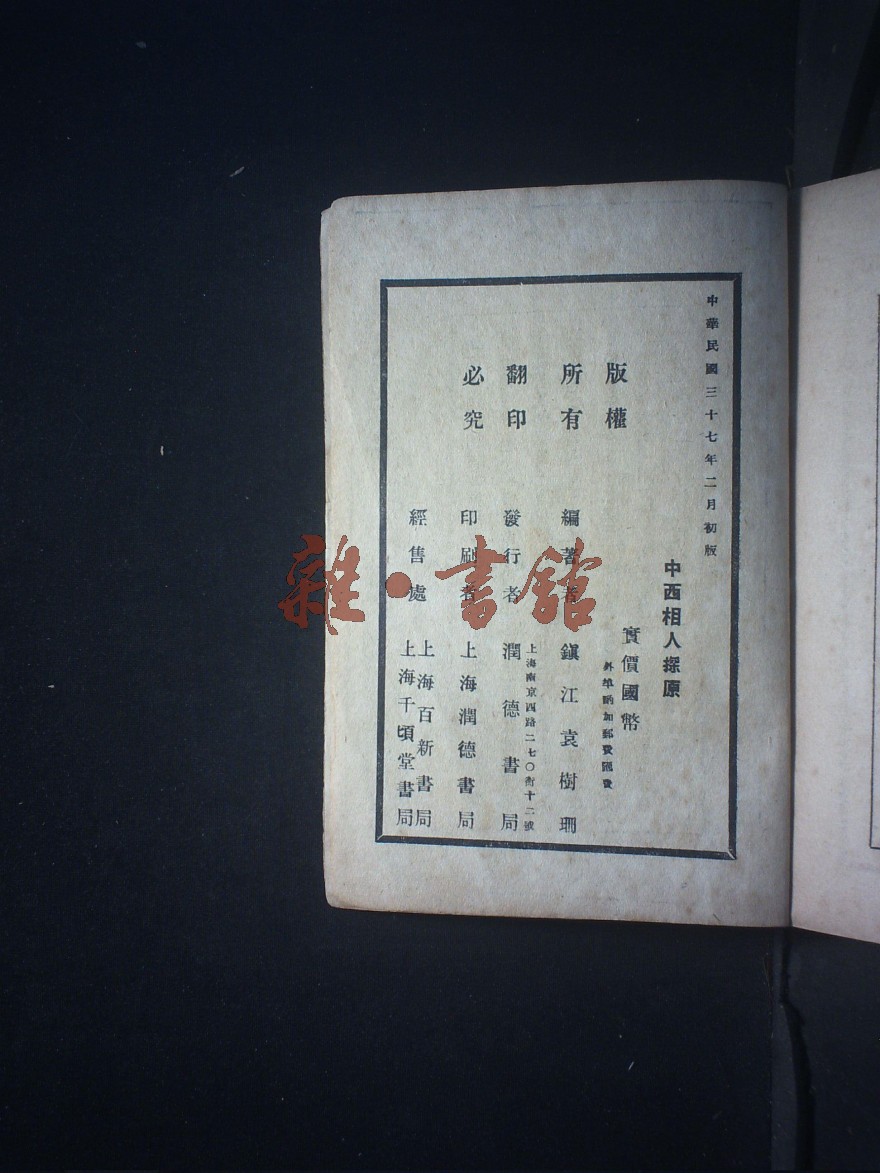 中華民國三十七年二月初版
中西相人探原
實價國幣
外埠酌加郵費匯費
版權
所有
翻印
必究
編著者 鎮江袁樹珊
發行者 潤德書局
上海南京西路二七〇衖十二號
印刷者 上海潤德書局
經售處 上海百新書局
上海千頃堂書局
雜·書館